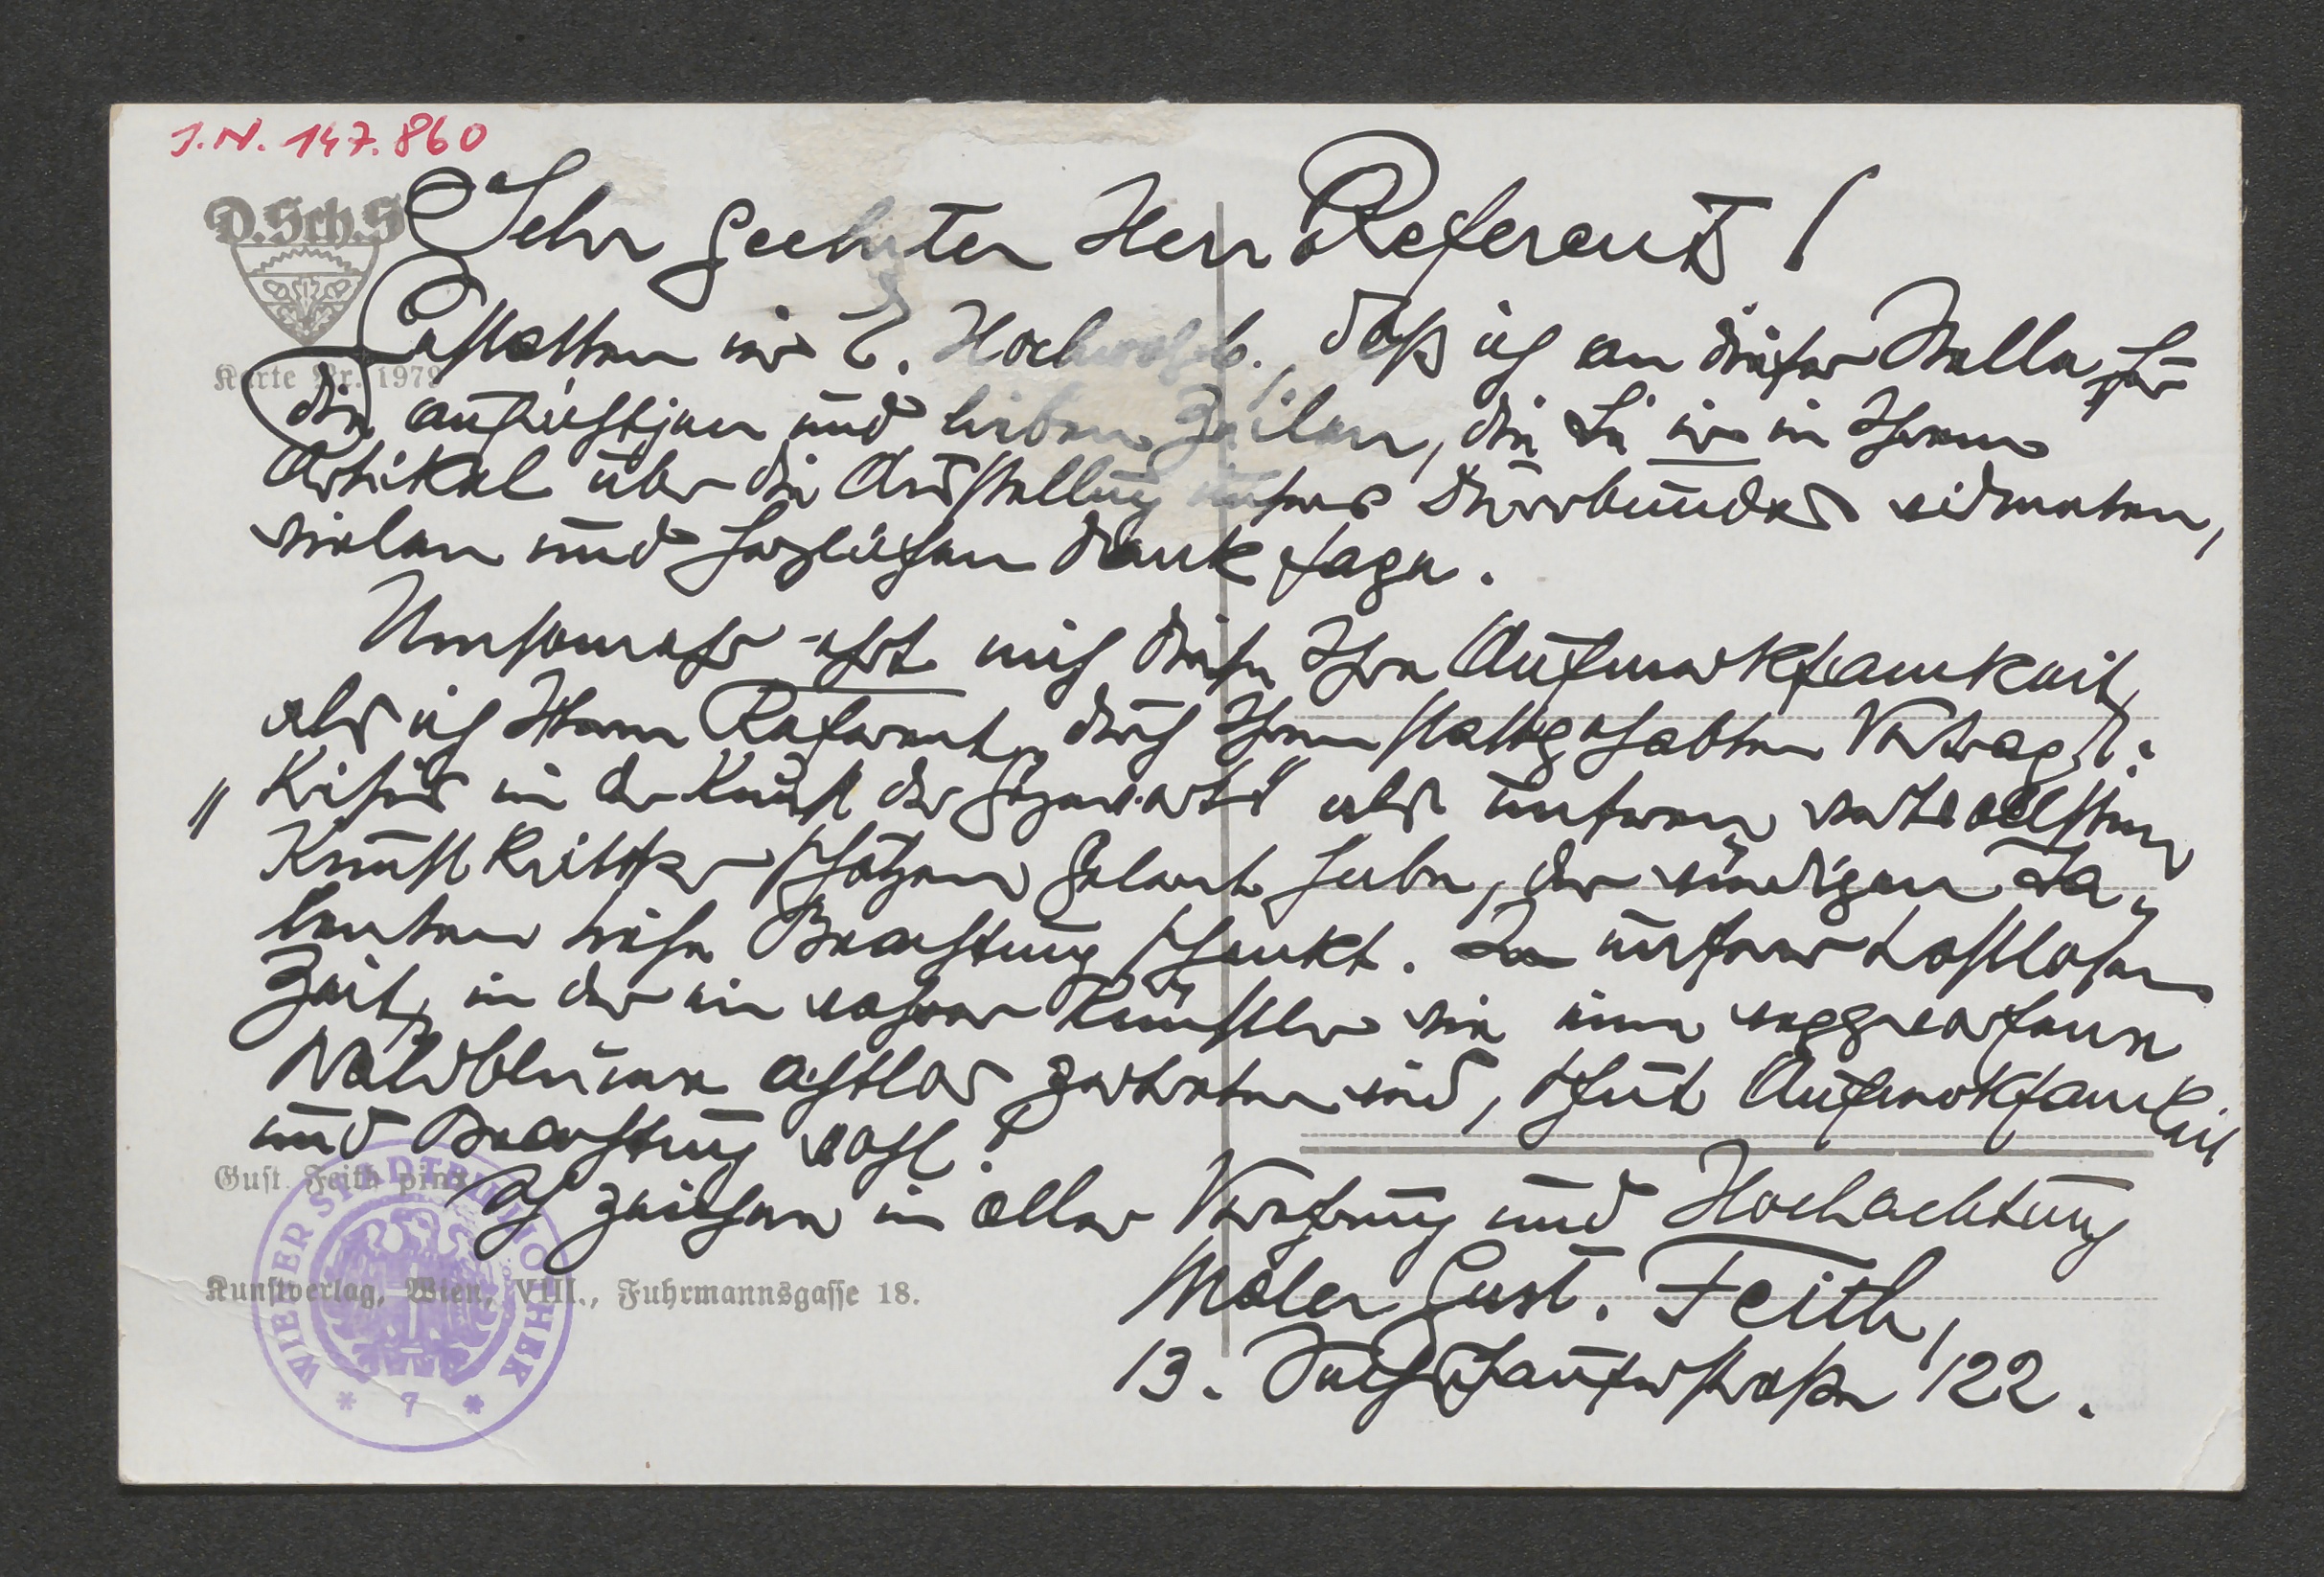 J.N. 147.860
D.Sch.S
Karte Nr. 1979
Sehr geehrter Herr Referent!
Gestatten mir E. Hochwohlb., daß ich an dieser Stelle für
die aufrichtigen und lieben Zeilen, die Sie mir in Ihrem
Artikel über die Ausstellung unseres Dürerbundes widmeten,
vielen und herzlichen Dank sage.
Umsomehr ehrt mich diese Ihre Aufmerksamkeit,
als ich Herrn Referent durch Ihren stattgehabten Vortrag d.
"Krisis in der Kunst der Gegenwart" als unseren wertvollsten
Kunstkritiker schätzen gelernt habe, der würdigen Ta-
lenten hohe Beachtung schenkt. In unserer trostlosen
Zeit, in der ein wahrer Künstler wie eine weggeworfene
Waldblume achtlos zertreten wird, thut Aufmerksamkeit
und Beachtung wohl!
Ich zeichne in aller Verehrung und Hochachtung
Maler Gust. Feith,
13. Hütteldorferstraße 122.
Gust. Feith pinx.
Kunstverlag, Wien, VIII., Fuhrmannsgasse 18.
WIENER STADTBIBLIOTHEK
* 7 *